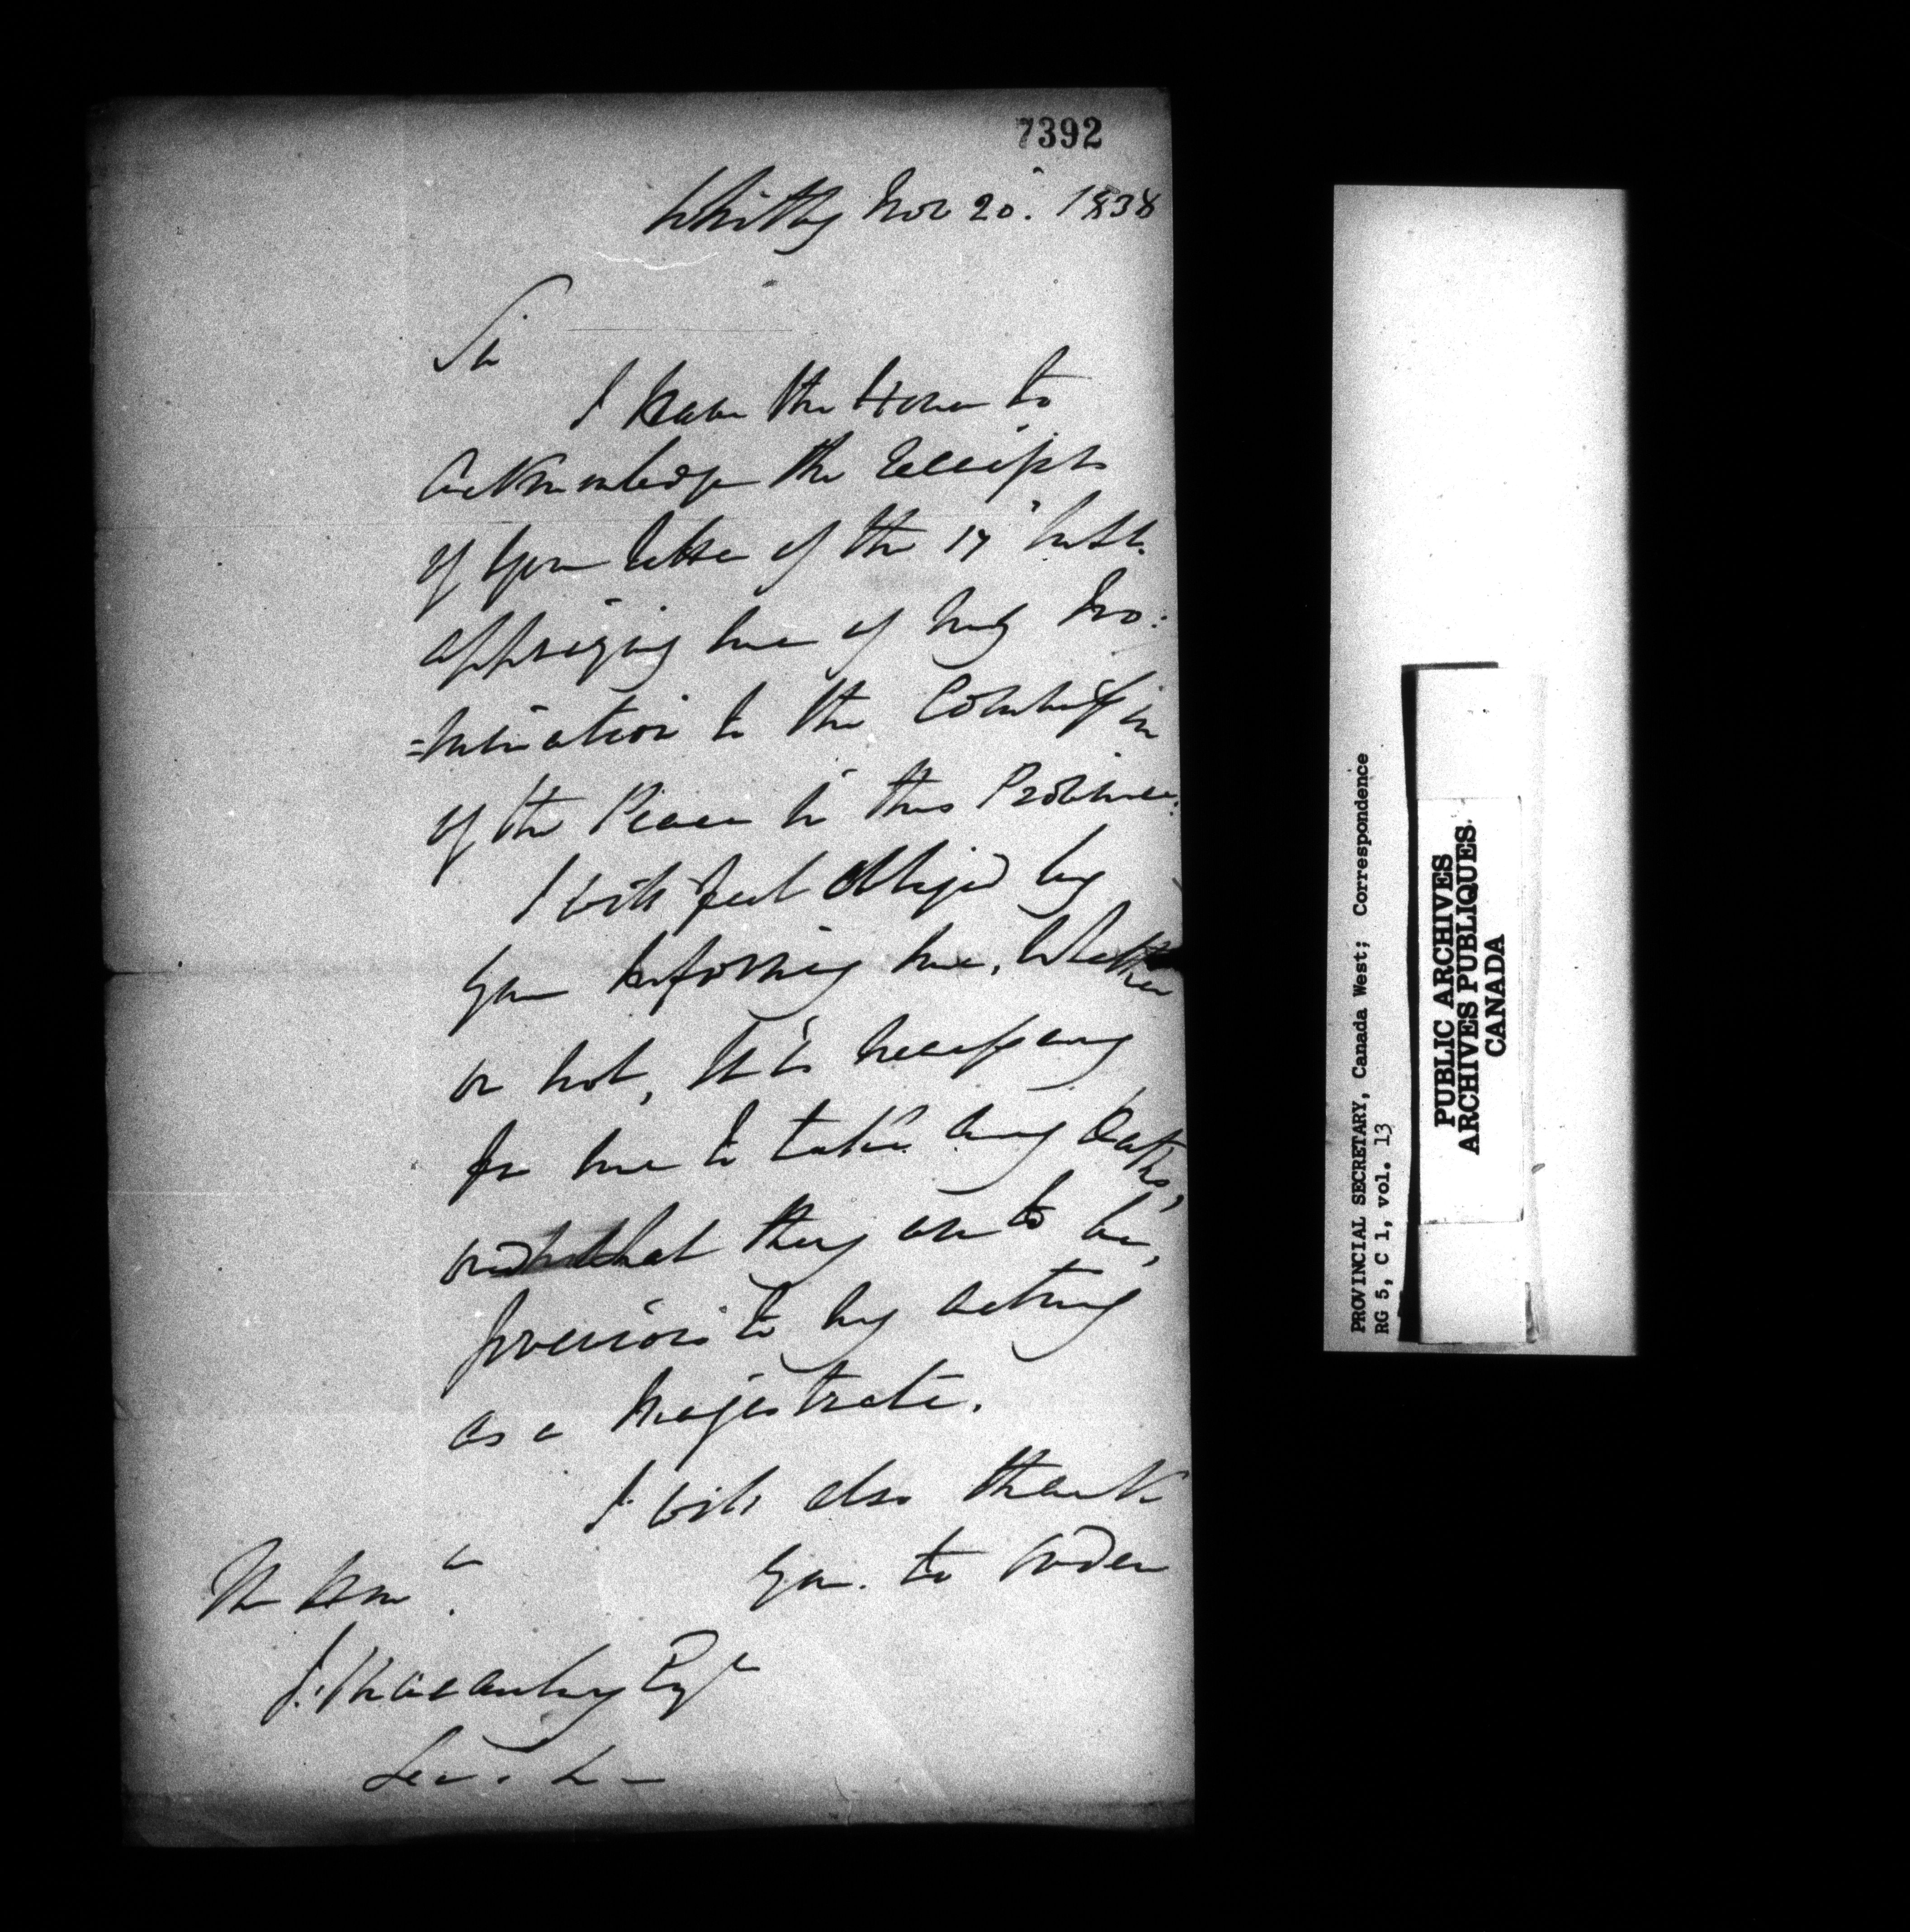 7392
Whitby Nov 20. 1838
Sir
I have the Honor to
Acknowledge the Receipt
of your letter of the 17" Inst.
apprizing me of my No:
=mination to the Commissin
of the Peace in this Province.
I will feel obliged by
your informing me, Whether
or not, It is necessary
for me to take any Oaths,
and what they are to be,
previous to my acting
as a Magistrate.
I will also thank
you. to order
The Honble
J. Macaulay Esqr
PROVINCIAL SECRETARY, Canada West; Correspondence
RG 5, C 1, vol. 13
PUBLIC ARCHIVES
ARCHIVES PUBLIQUES
CANADA